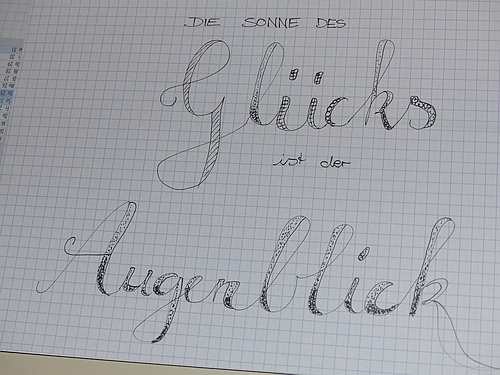 DIE SONNE DES
Glücks
ist der
Augenblick